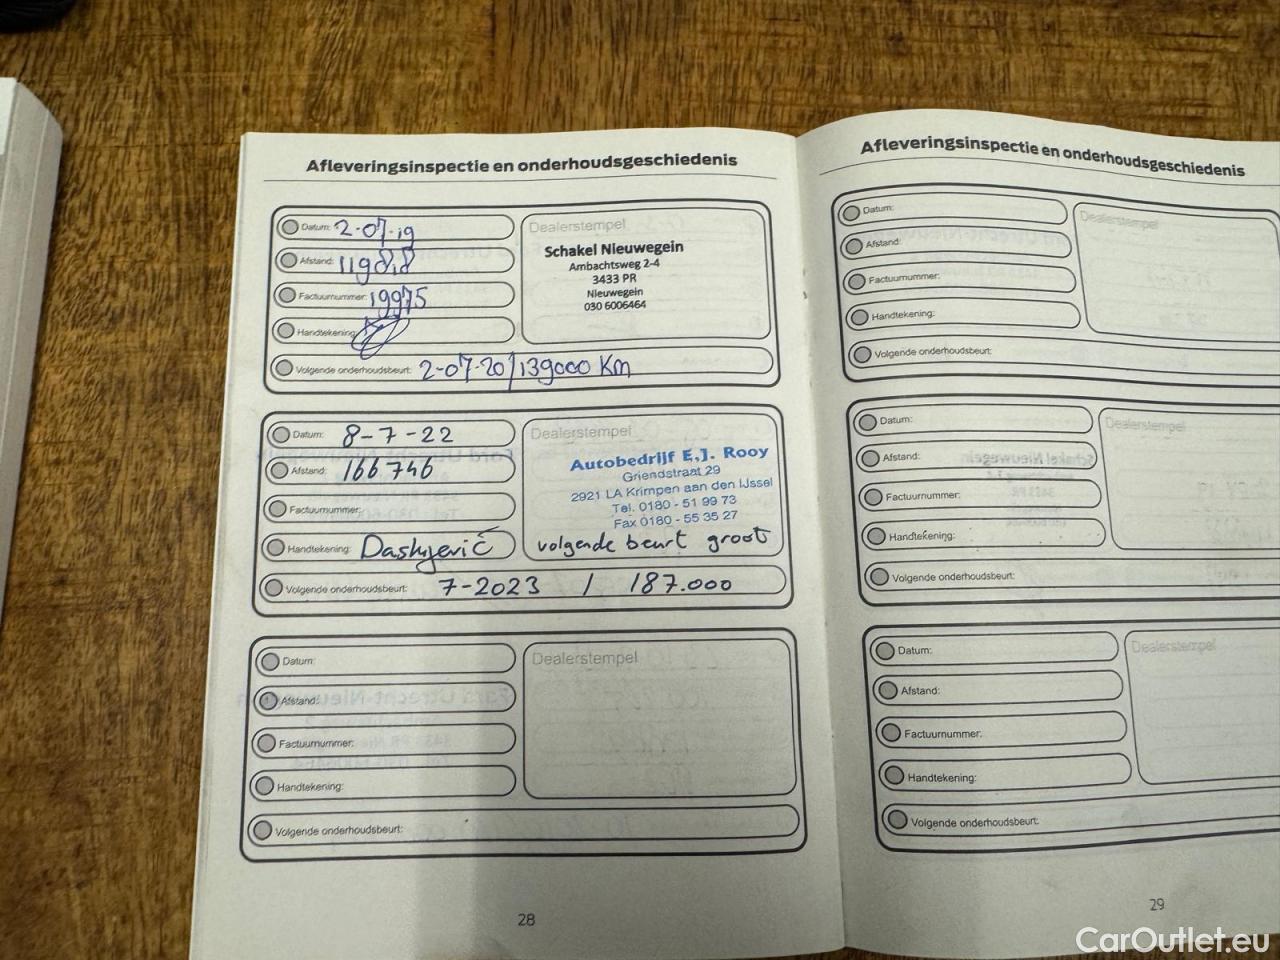 Afleveringsinspectie en onderhoudsgeschiedenis
Datum: 2-07-19
Afstand: 119818
Factuurnummer: 19975
Handtekening:
Volgende onderhoudsbeurt: 2-07-20/139000 Km
Dealerstempel
Schakel Nieuwegein
Ambachtsweg 2-4
3433 PR
Nieuwegein
030 6006464
Datum: 8-7-22
Afstand: 166746
Factuurnummer:
Handtekening:
Volgende onderhoudsbeurt: 7-2023 / 187.000
Dealerstempel
Autobedrijf E.J. Rooy
Griendstraat 29
2921 LA Krimpen aan den IJssel
Tel. 0180 - 51 99 73
Fax 0180 - 55 35 27
volgende beurt groot
Datum:
Afstand:
Factuurnummer:
Handtekening:
Volgende onderhoudsbeurt:
Dealerstempel
28
Afleveringsinspectie en onderhoudsgeschiedenis
Datum:
Afstand:
Factuurnummer:
Handtekening:
Volgende onderhoudsbeurt:
Dealerstempel
Datum:
Afstand:
Factuurnummer:
Handtekening:
Volgende onderhoudsbeurt:
Dealerstempel
Datum:
Afstand:
Factuurnummer:
Handtekening:
Volgende onderhoudsbeurt:
Dealerstempel
29
CarOutlet.eu